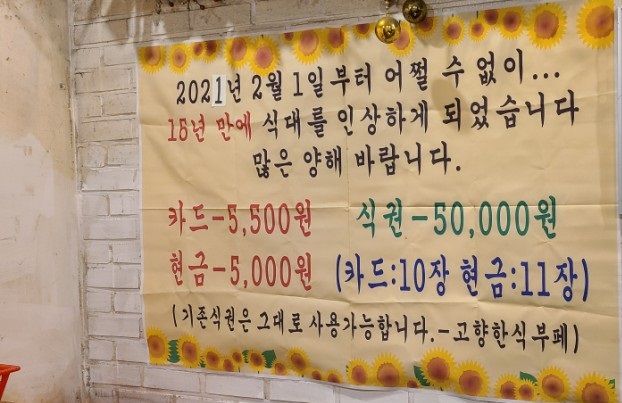 2021년 2월 1일부터 어쩔 수 없이...
15년 만에 식대를 인상하게 되었습니다
많은 양해 바랍니다.
카드-5,500원 식권-50,000원
현금-5,000원 (카드:10장 현금:11장)
(기존식권은 그대로 사용가능합니다.-고향한식부페)